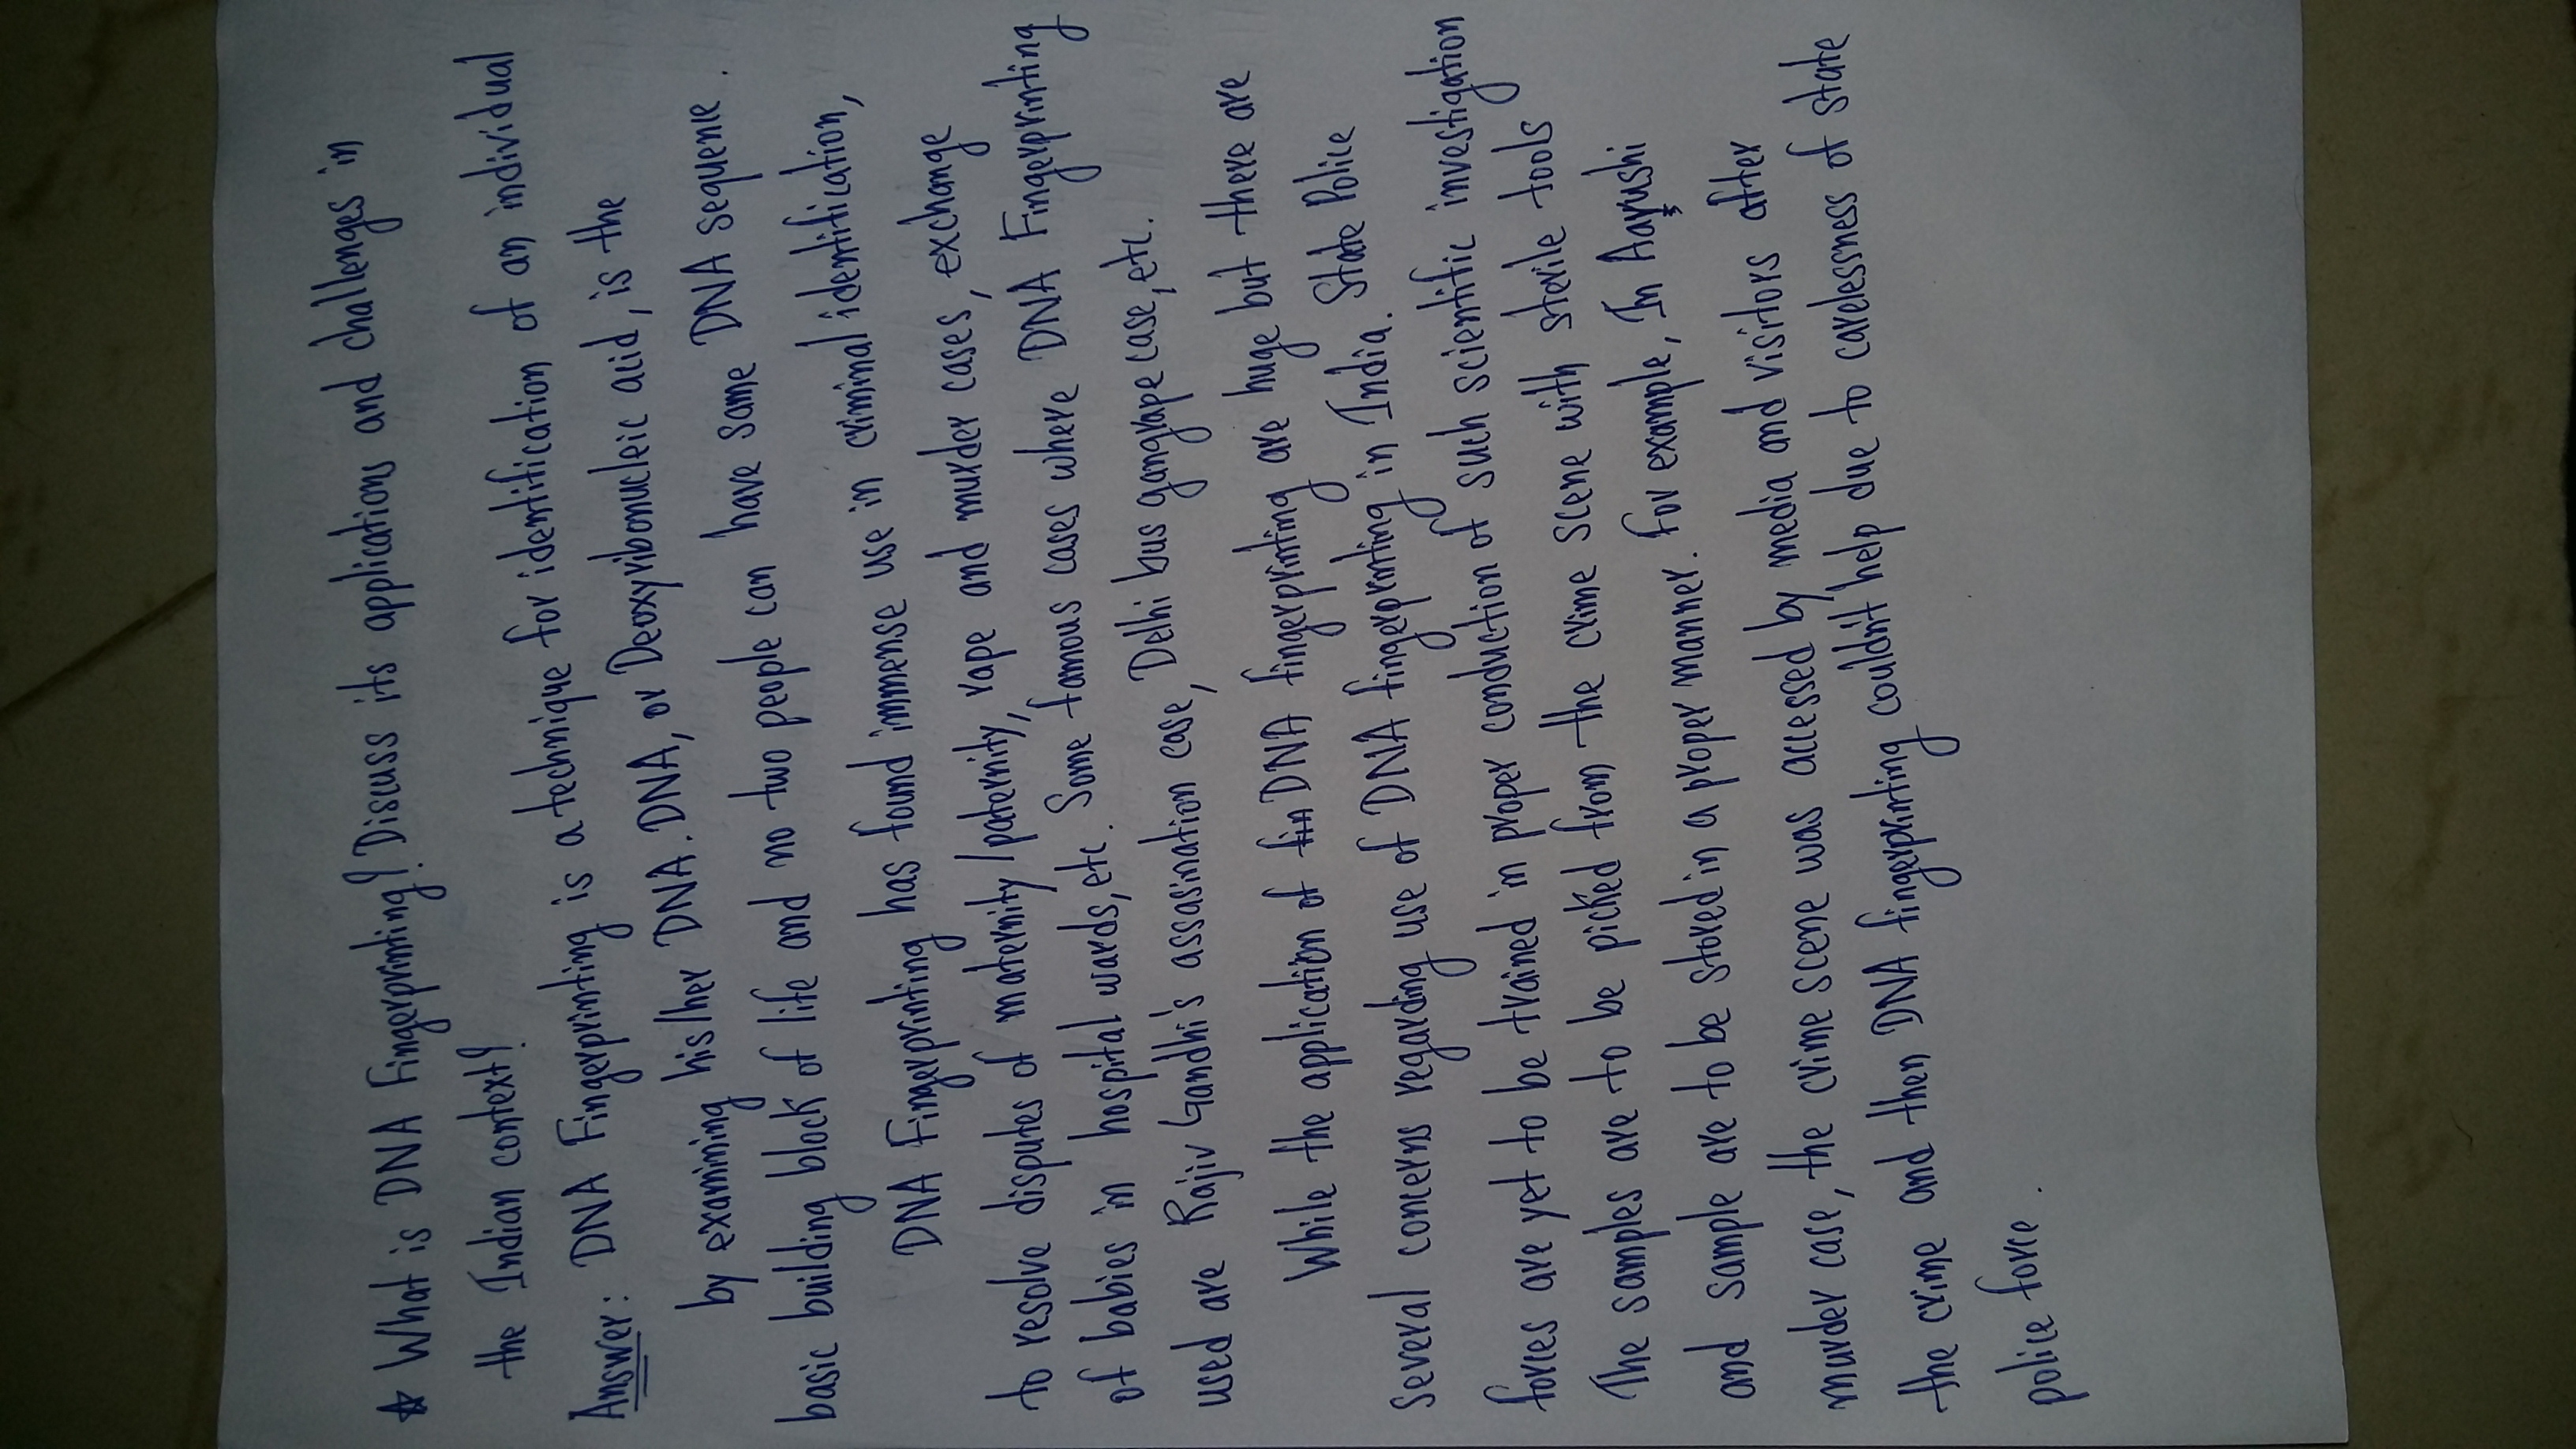 ☆ What is DNA Fingerprinting? Discuss its applications and challenges in
the Indian context?
Answer: DNA Fingerprinting is a technique for identification of an individual
by examining his/her DNA. DNA, or Deoxyribonucleic acid, is the
basic building block of life and no two people can have same DNA sequence.
DNA Fingerprinting has found immense use in criminal identification,
to resolve disputes of maternity/paternity, rape and murder cases, exchange
of babies in hospital wards, etc. Some famous cases where DNA Fingerprinting
used are Rajiv Gandhi's assasination case, Delhi bus gangrape case, etc.
While the application of fin DNA fingerprinting are huge but there are
several concerns regarding use of DNA fingerprinting in India. State Police
forces are yet to be trained in proper conduction of such scientific investigation
The samples are to be picked from the crime scene with sterile tools
and sample are to be stored in a proper manner. For example, In Aarushi
murder case, the crime scene was accessed by media and visitors after
the crime and then DNA fingerprinting couldn't help due to carelessness of state
police force.